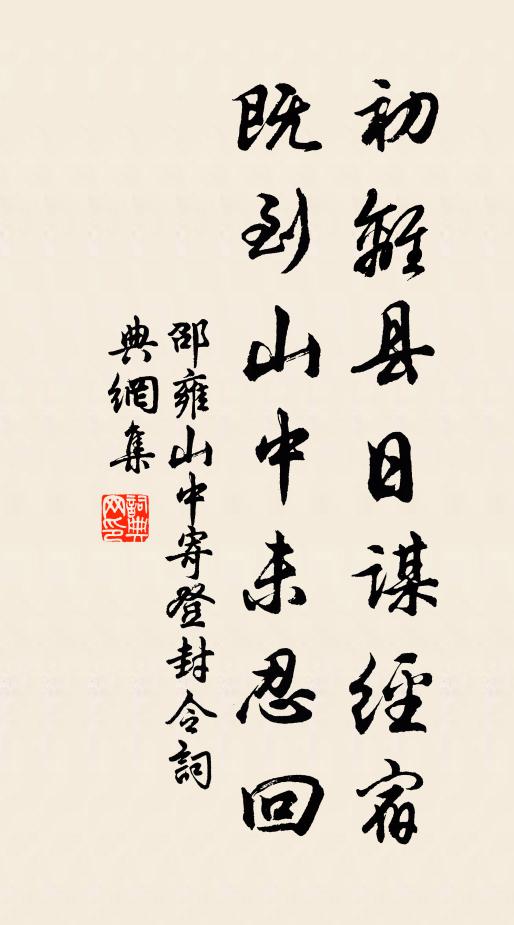 初離县日谋經宿
既到山中未忍回
邵雍山中寄登封令詞
典網集
詞典网印